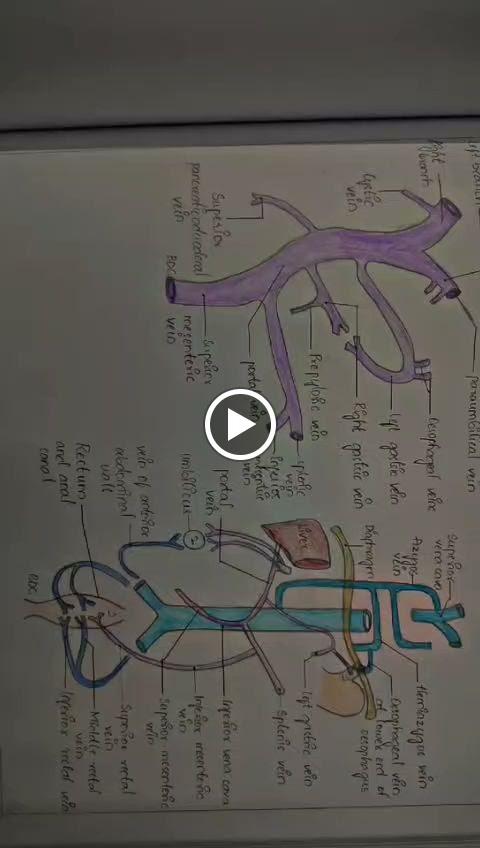 Right
branch
Cystic
vein
Superior
pancreaticoduodenal
vein
BDC
Superior
mesenteric
vein
portal vein
splenic
vein
Inferior
Prepyloric vein
Right gastric vein
left gastric vein
Oesophageal veins
paraumbilical vein
Superior
vena cava
Azygos
vein
Diaphragm
liver
portal
vein
umbilicus
vein of anterior
abdominal
wall
Rectum
and anal
canal
BDC
Hemiazygous vein
Oesophageal vein
at lower end of
oesophagus
left gastric vein
Splenic vein
Inferior vena cava
Inferior mesenteric
vein
Superior mesenteric
vein
Superior rectal
vein
Middle rectal
vein
Inferior rectal vein